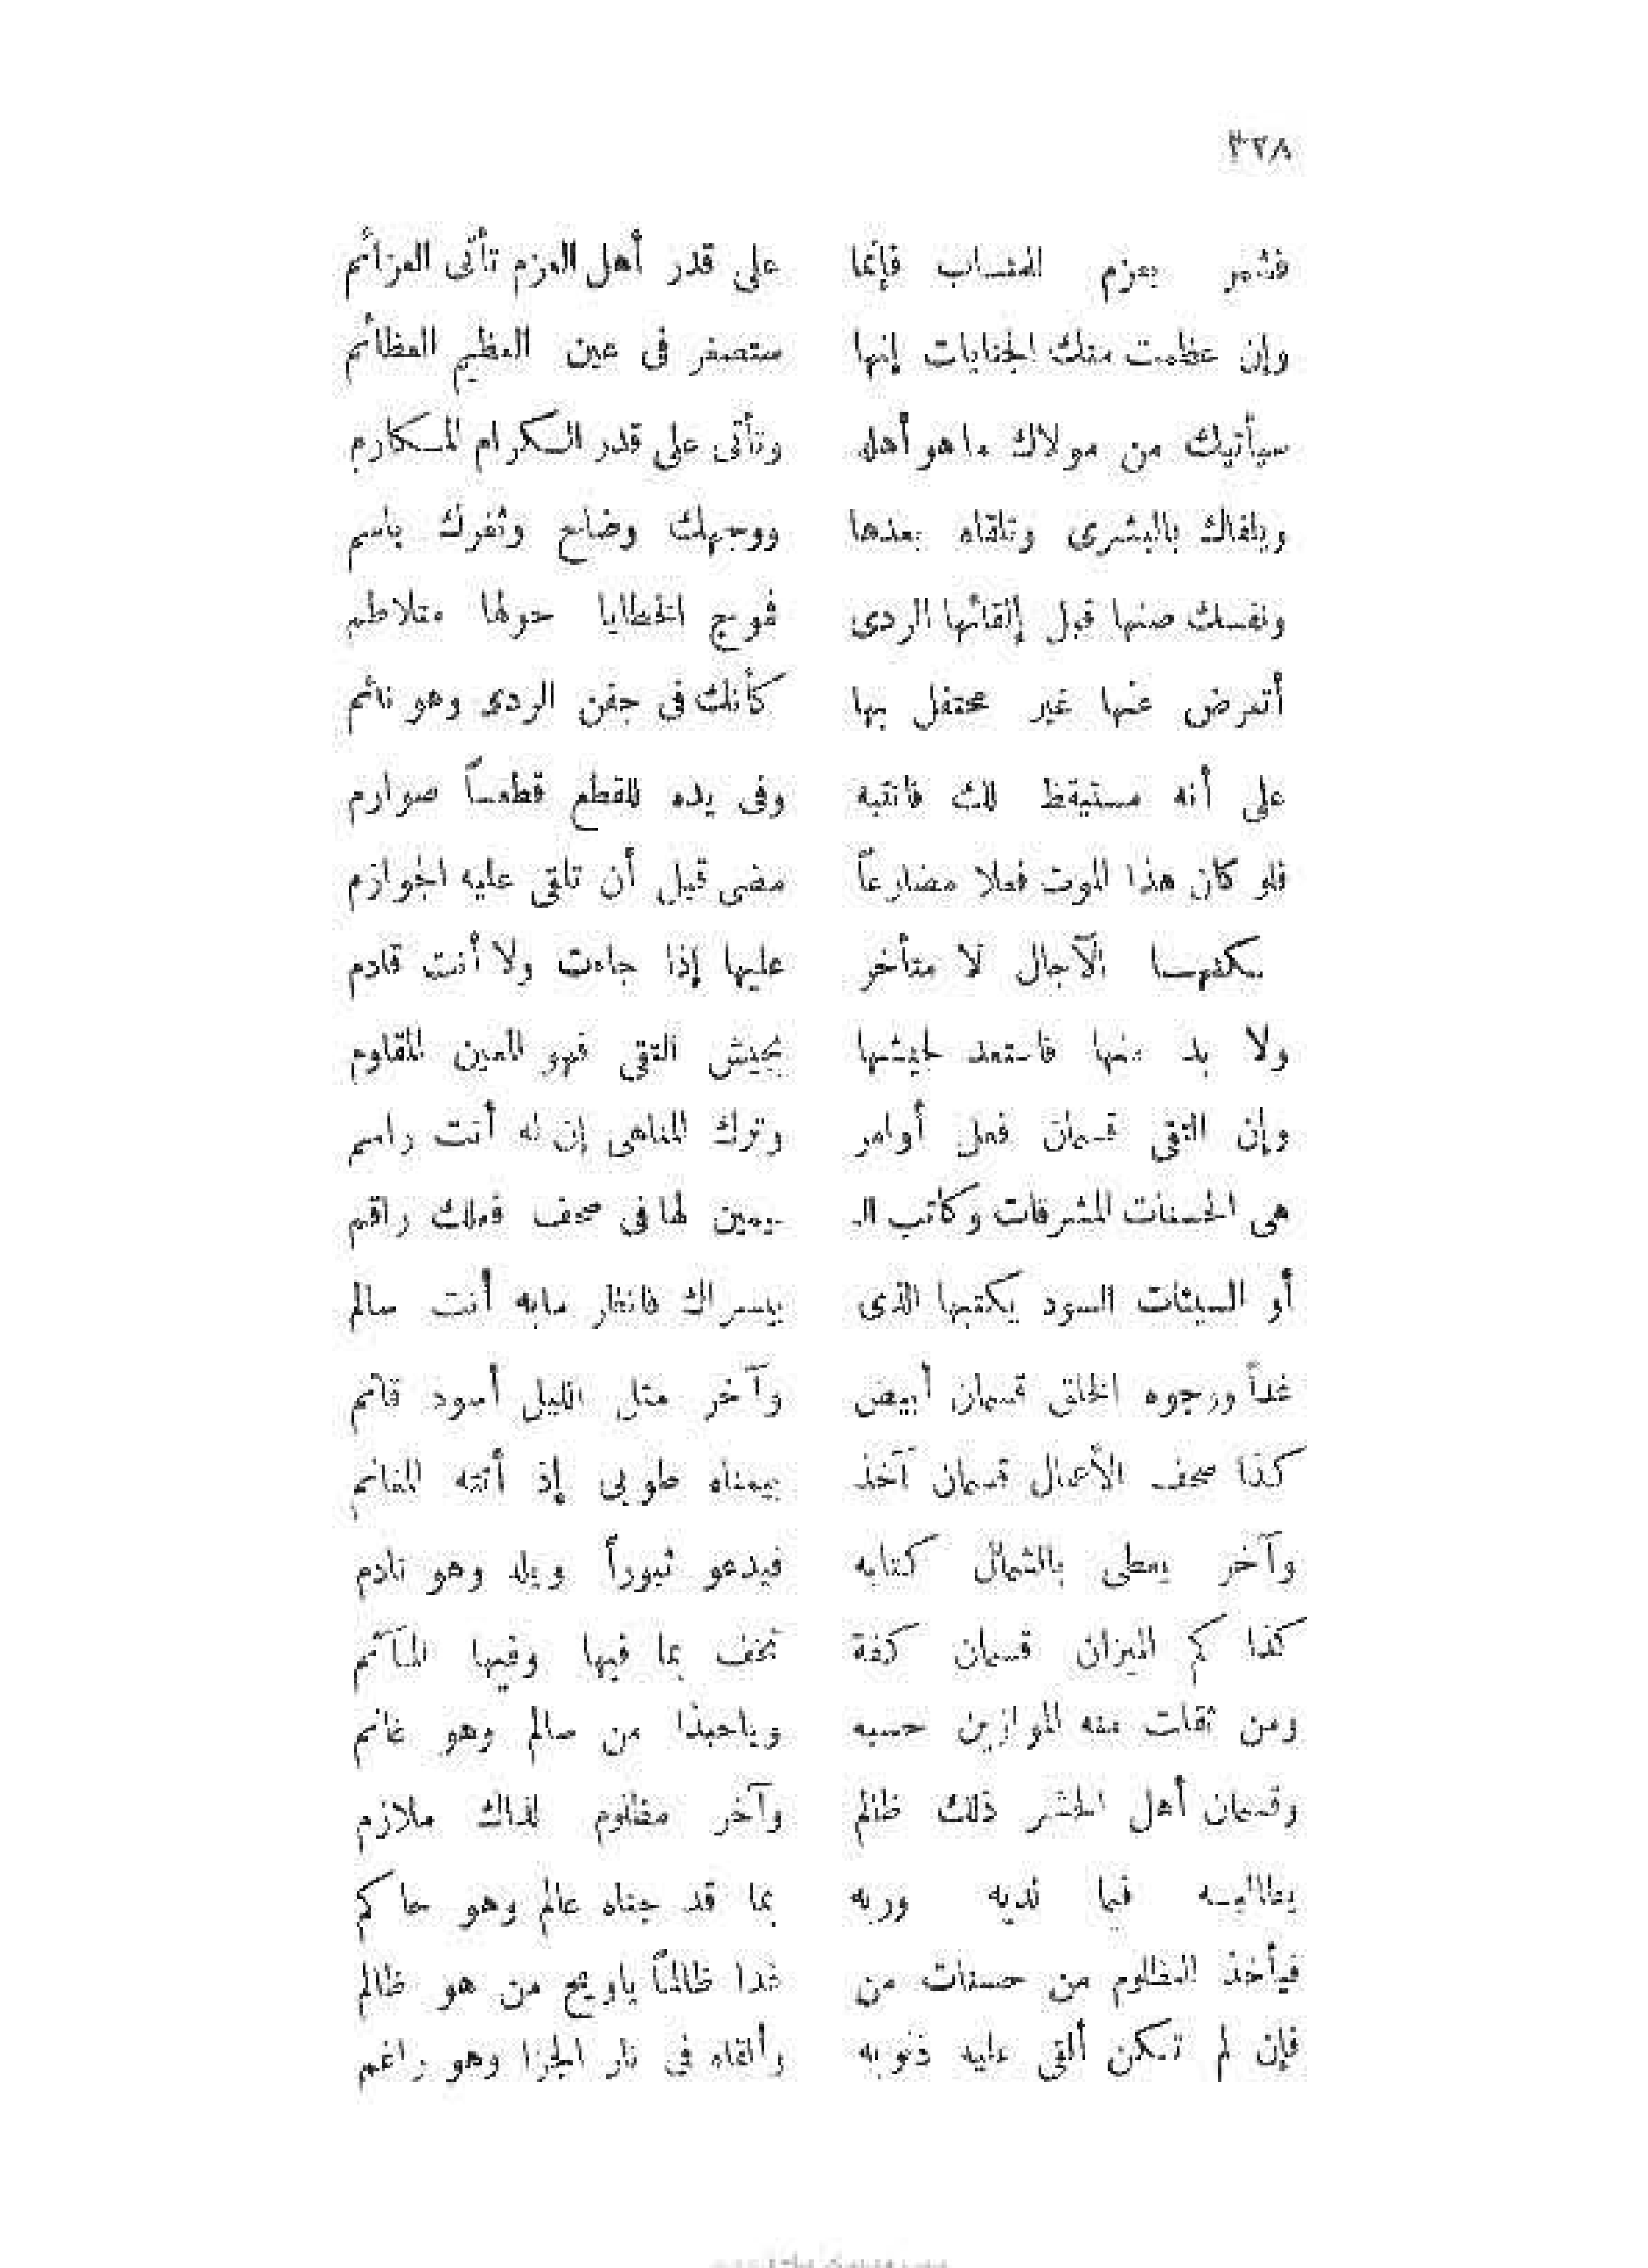 ٣٢٨
فشمر بعزم المتاب فإنما على قدر أهل العزم تأتى العزائم
وإن عظمت منك الجنايات إنها ستصغر فى عين العظيم العظائم
سيأتيك من مولاك ما هو أهله وتأتى على قدر الكرام المكارم
ويلقاك بالبشرى وتلقاه بعدها ووجهك وضاح وثغرك باسم
ونفسك صنها قبل إلقائها الردى فموج الخطايا حولها متلاطم
أتعرض عنها غير محتفل بها كأنك فى جفن الردى وهو نائم
على أنه مستيقظ لك فانتبه وفى يده للقطع قطعاً صوارم
فلو كان هذا الموت فعلا مضارعاً مضى قبل أن تلقى عليه الجوازم
الآجال لا متأخر عليها إذا جاءت ولا أنت قادم
ولا بد منها فاستعد لجيشها بجيش التقى فهو المعين المقاوم
وإن التقى قسمان فعل أوامر وترك المناهى إن له أنت راسم
هى الحسنات المشرقات وكاتب الـ ـيمين لها فى صحف فعلك راقم
أو السيئات السود يكتبها الذى بيسراك فانظر مابه أنت سالم
غداً ووجوه الخلق قسمان أبيض وآخر مثل الليل أسود قاتم
كذا صحف الأعمال قسمان آخذ بيمناه طوبى إذ أتته المغانم
وآخر يعطى بالشمال كتابه فيدعو ثبوراً ويله وهو نادم
كذا كم الميزان قسمان كفة تخف بما فيها وفيها المآثم
ومن ثقلت منه الموازين حسبه وياحبذا من سالم وهو غانم
وقسمان أهل الحشر ذلك ظالم وآخر مظلوم لذاك ملازم
يطالبه فيما لديه وربه بما قد جناه عالم وهو حاكم
فيأخذ المظلوم من حسنات من غدا ظالماً ياويح من هو ظالم
فإن لم تكن ألقى عليه ذنوبه وألقاه فى نار الجزا وهو راغم